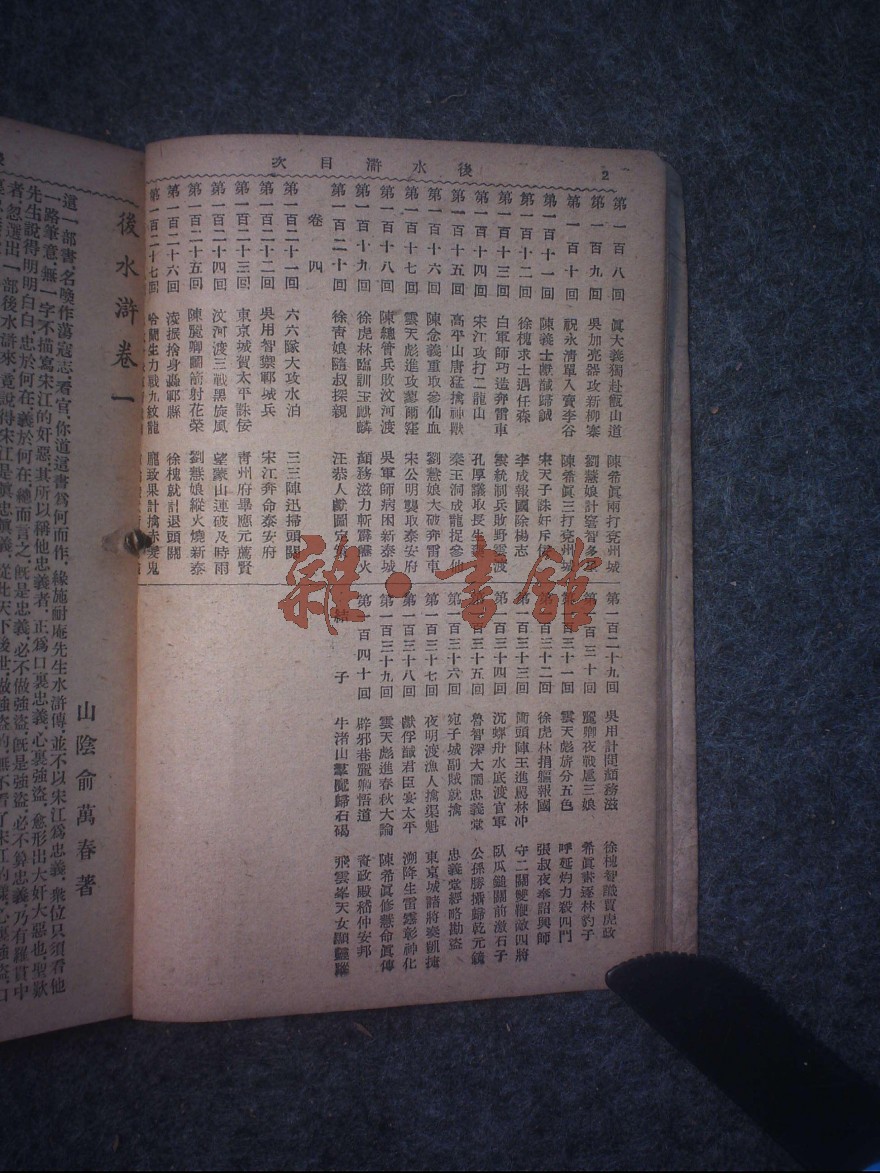 後水滸目次
2
第一百八回 眞大義獨赴甑山道 陳希眞兩打兗州城
第一百九回 吳加亮器攻新柳寨 劉慧娘計窘智多星
第一百十回 祝永清單入賣李谷 陳希眞三打兗州城
第一百十一回 陳義士獻馘歸誠 宋天子誅奸斥佞
第一百十二回 徐槐求士遇任森 李成報國除楊志
第一百十三回 白軍師巧造奔雷車 雲統制兵敗野雲渡
第一百十四回 宋江攻打二龍山 孔厚議取長生藥
第一百十五回 高平山唐猛擒神獸 秦王洞成龍捉參仙
第一百十六回 陳念義重取參仙血 劉慧娘大破奔雷車
第一百十七回 雲天彪進攻蓼兒窪 宋公明襲取泰安府
第一百十八回 陳總管兵敗汶河渡 吳軍師病困新泰城
第一百十九回 徐虎林臨訓玉麒麟 顏務滋力斬霹靂火
第一百二十回 徐靑娘隨叔探親 汪恭人獻圖定策
卷四
第一百二十一回 六六隊大攻水泊 三三陣迅掃頭關
第一百二十二回 吳用智禦鄆城兵 宋江奔命泰安府
第一百二十三回 東京城賀太平誅佞 靑州府畢應元薦賢
第一百二十四回 汶河渡三戰黑旋風 望蒙山連破及時雨
第一百二十五回 陳麗卿鬬箭射花榮 劉慧娘縱火燒新泰
第一百二十六回 凌振捨身轟鄆縣 徐槐就計退頭關
第一百二十七回 哈蘭生力戰九紋龍 龐致果計擒赤髮鬼
第一百二十九回 吳用計間顏務滋 徐槐智識賈虎政
第一百三十回 麗卿夜戰扈三娘 希眞晝逐林豹子
第一百三十一回 雲天彪旂分五色 呼延灼力殺四門
第一百三十二回 徐虎林捐軀報國 張叔夜奉詔興師
第一百三十三回 衝頭陣王進罵林冲 守二關雙鞭敵四將
第一百三十四回 沉螺舟水底渡官軍 臥瓜鎚關前激石子
第一百三十五回 魯智深大鬧忠義堂 公孫勝攝歸乾元鏡
第一百三十六回 宛子城副賊就擒 忠義堂經略勘盜
第一百三十七回 夜明渡漁人擒渠魁 東京城諸將奏凱捷
第一百三十八回 獻俘馘君臣宴太平 溯降生雷霆彰神化
第一百三十九回 雲天彪進春秋大論 陳希眞修慧命眞傳
第一百四十回 辟邪巷麗卿悟道 資政殿嵇仲安邦
結子 牛渚山羣魔歸石碣 飛雲峯天女顯靈蹤
後水滸卷一
山陰俞萬春著
這一部書、名喚作蕩寇志、看官、你道這書爲何而作、緣施耐庵先生水滸傳、並不以宋江爲忠義、衆位只須看他
一路筆意、無一字不描寫宋江的奸惡、其所以稱他忠義者、正爲口裏忠義、心裏強盜、愈形出大奸大惡也、聖歎
先生說得明明白白、忠於何在、義於何在、總而言之、旣是忠義、必不做強盜、旣是強盜、必不算忠義、乃有羅貫中
者、忽選出一部後水滸來、竟說得宋江是眞忠眞義、從此天下後世、做強盜的、無不看了宋江的樣、心裏強盜、口
雜·書館